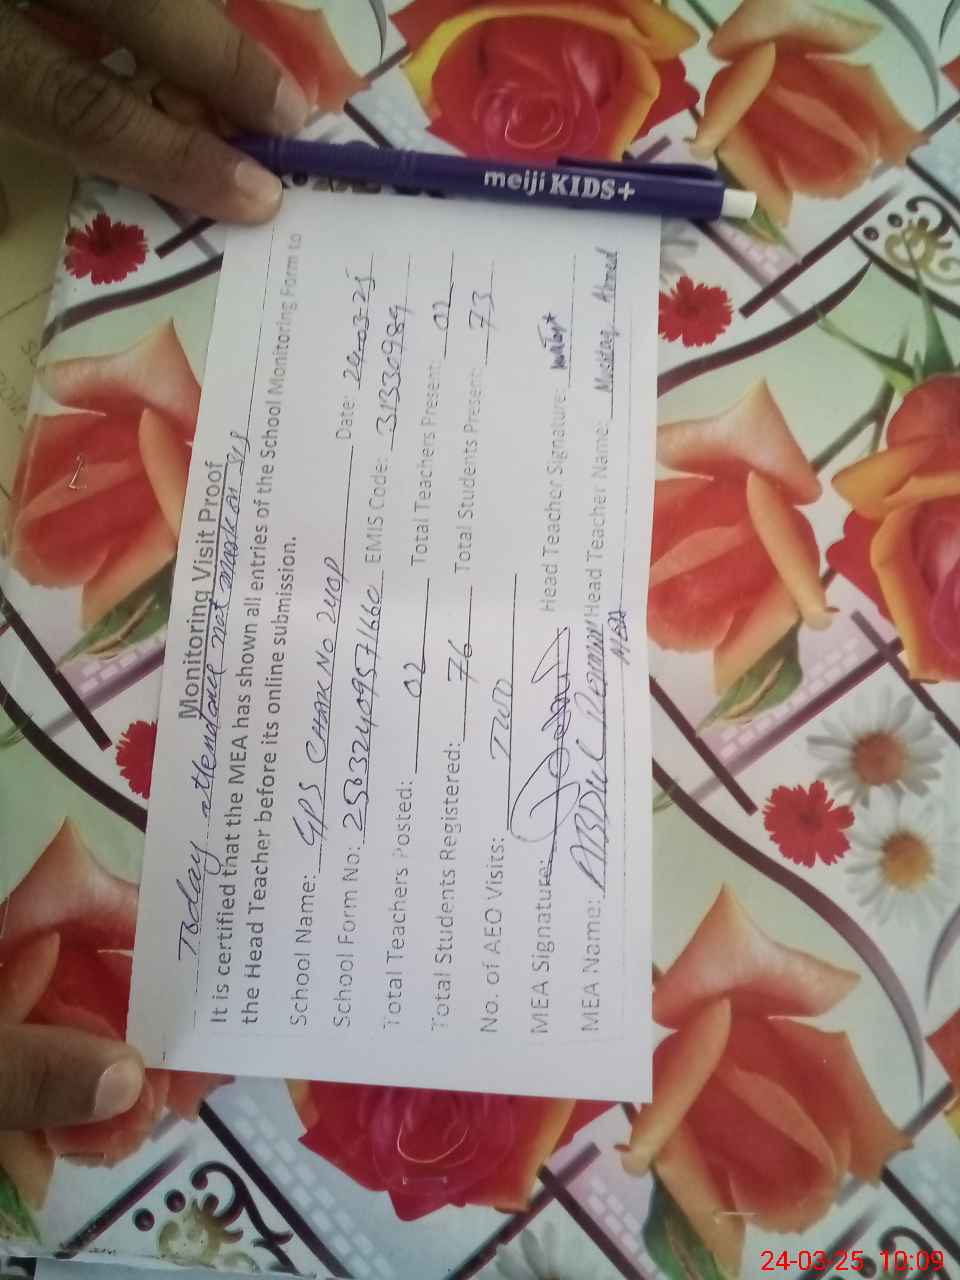 meiji KIDS+
Monitoring Visit Proof
Today attendance not mark on SIS
It is certified that the MEA has shown all entries of the School Monitoring Form to
the Head Teacher before its online submission.
School Name: GPS CHAK No 240P Date: 24-03-25
School Form No: EMIS Code: 31330989
Total Teachers Posted: 02 Total Teachers Present: 02
Total Students Registered: 76 Total Students Present: 73
No. of AEO Visits: TWO
MEA Signature: Head Teacher Signature:
MEA Name: ABDUL Head Teacher Name: Mushtaq Ahmed
24-03-25 10:09